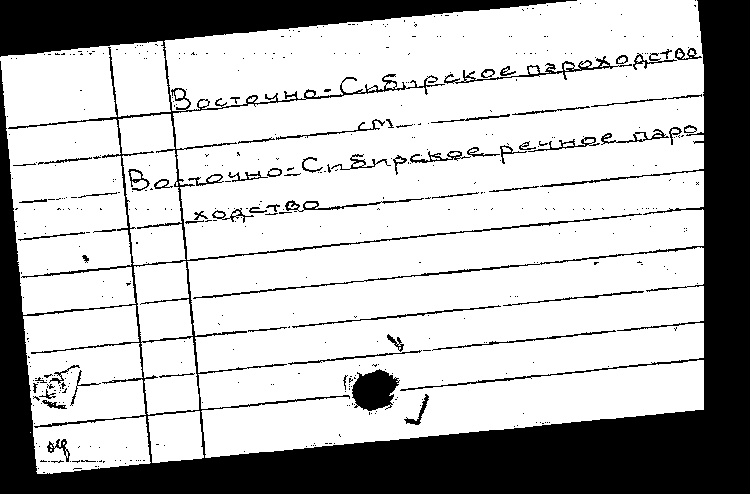 Восточно-Сибирское пароходство
см
Восточно-Сибирское речное паро
ходство